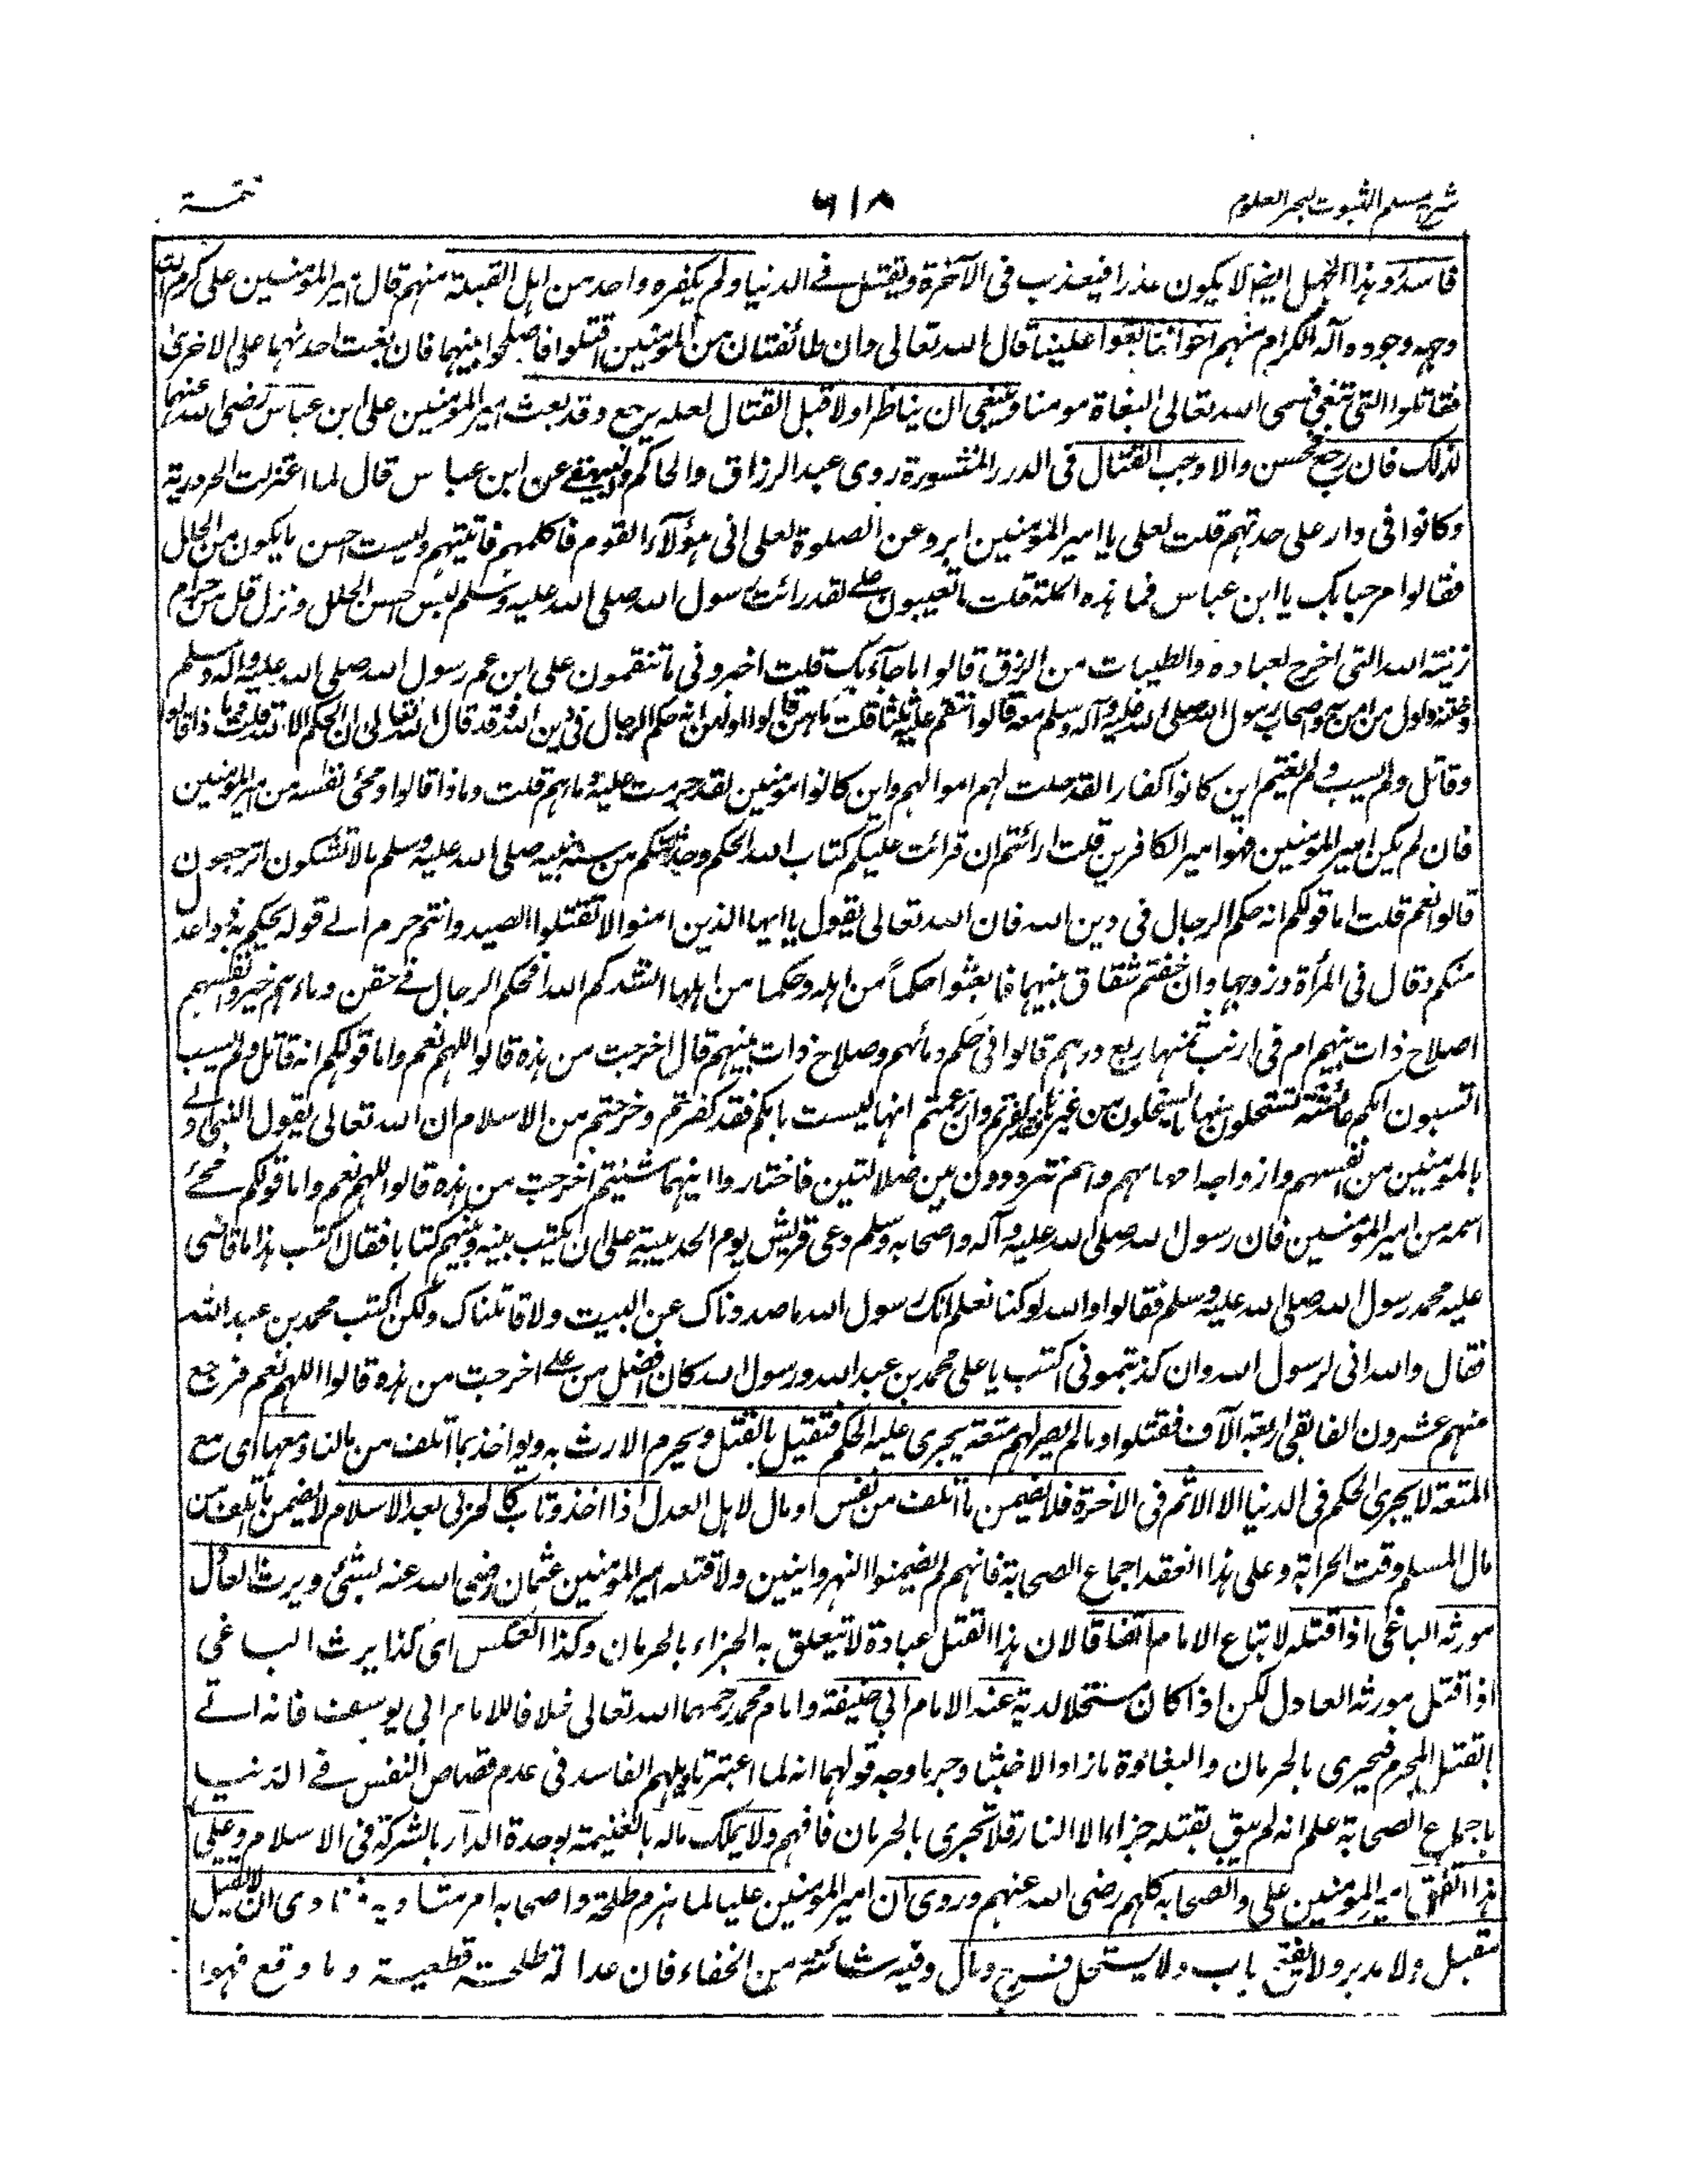 شرح مسلم الثبوت لبحر العلوم
٦١٨
تتمـــة
فاسد و هذا الجهل ايضا لا يكون عذرا فيعذب فى الآخرة ويقتل فے الدنيا ولم يكفره واحد من اهل القبلة منهم قال امير المؤمنين على كرم الله
وجهه ووجوه آله الكرام منهم اخواننا بغوا علينا قال الله تعالى وان طائفتان من المؤمنين اقتتلوا فاصلحوا بينهما فان بغت احدىهما على الاخرى
فقاتلوا التى تبغى فسمى الله تعالى البغاة مومنا وينبغى ان يناظر اولا قبل القتال لعله يرجع وقد بعث امير المؤمنين على ابن عباس رضى الله عنهما
لذلك فان رجع فحسن والا وجب القتال فى الدرر المنشورة روى عبد الرزاق والحاكم والبيهقے عن ابن عباس قال لما اعتزلت الحرورية
وكانوا فى دار على حدتهم قلت لعلى يا امير المؤمنين ابرد عن الصلوة لعلى اتى هؤلآء القوم فاكلمهم فاتيتهم ولبست احسن ما يكون من الحلل
فقالوا مرحبا بك يا ابن عباس فما هذه الحلة قلت ما تعيبون علے لقد رائت رسول الله صلى الله عليه وسلم لبس احسن الحلل ونزل قل من حرام
زينة الله التى اخرج لعباده والطيبات من الرزق قالوا ما جآء بك قلت اخبرونى ما تنقمون على ابن عم رسول الله صلى الله عليه وآله وسلم
وختنه واول من آمن به واصحاب رسول الله صلى الله عليه وآله وسلم معه قالوا ننقم عليه ثلثا قلت ما هن قالوا اولهن انه حكم الرجال فى دين الله وقد قال الله تعالى ان الحكم الا لله قلت وما ذا قالوا
وقاتل ولم يسب ولم يغنم لين كانوا كفارا لقد حلت لهم اموالهم ولين كانوا مؤمنين لقد حرمت عليه دماءهم قلت وماذا قالوا ومحى نفسه من امير المؤمنين
فان لم يكن امير المؤمنين فهو امير الكافرين قلت ارائتم ان قرائت عليكم كتاب الله المحكم وحدثتكم من سنة نبيه صلى الله عليه وسلم ما لا تشكون اترجعون
قالوا نعم قلت اما قولكم انه حكم الرجال فى دين الله فان الله تعالى يقول يا ايها الذين امنوا لا تقتلوا الصيد وانتم حرم الے قوله يحكم به ذوا عدل
منكم وقال فى المرأة وزوجها وان خفتم شقاق بينهما فابعثوا حكماً من اهله وحكما من اهلها انشدكم الله افحكم الرجال فے حقن دماءهم خير وانفسهم
اصلاح ذات بينهم ام فى ارنب ثمنها ربع درهم قالوا فى حكم دمائهم وصلاح ذات بينهم قال اخرجت من هذه قالوا اللهم نعم واما قولكم انه قاتل ولم يسب
اتسبون امكم عائشة تستحلون منها ما يستحلون من غيرها فقد كفرتم وان زعمتم انها ليست بامكم فقد كفرتم وخرجتم من الاسلام ان الله تعالى يقول النبى اولے
بالمؤمنين من انفسهم وازواجه امهاتهم وانتم تترددون بين ضلالتين فاختاروا ايتهما شئتم اخرجت من هذه قالوا اللهم نعم واما قولكم محے
اسمه من امير المؤمنين فان رسول الله صلى الله عليه وآله واصحابه وسلم دعى قريش يوم الحديبية على ان يكتب بينه وبينهم كتابا فقال اكتب هذا ما قاضى
عليه محمد رسول الله صلى الله عليه وسلم فقالوا والله لو كنا نعلم انك رسول الله ما صددناك عن البيت ولا قاتلناك ولكن اكتب محمد بن عبد الله
فقال والله انى لرسول الله وان كذبتمونى اكتب يا على محمد بن عبد الله ورسول الله كان افضل من علے اخرجت من هذه قالوا اللهم نعم فرجع
منهم عشرون الفا بقى اربعة الآف فقتلوا وما لم يصر لهم منعة يجرى عليه الحكم فتقتيل بالقتل ويحرم الارث به ويواخذ بما اتلف من مالنا ومعها اى مع
المنعة لا يجرى الحكم فى الدنيا الا الاثم فى الاخرة فلا يضمن ما اتلف من نفس او مال لاهل العدل اذا اخذ وتاب كالحربى بعد الاسلام لا يضمن ما اتلف من
مال المسلم وقت الحرابة وعلى هذا انعقد اجماع الصحابة فانهم لم يضمنوا النهروانيين ولا قتلة امير المؤمنين عثمان رضى الله عنه بشئ ويرث العادل
مورثه الباغى اذا قتله لاتباع الامام اتفاقا لان هذا القتل عبادة لا يتعلق به الجزاء بالحرمان وكذا العكس اى كذا يرث الباغى
اذا قتل مورثه العادل لكن اذا كان مستحلا لدية عند الامام ابى حنيفة وامام محمد رحمهما الله تعالى خلافا للامام ابى يوسف فانه اتے
بالقتل المحرم فيجرى بالحرمان والبغاوة ما زاد الا خبثا وجه ما وجه قولهما انه لما اعتبر تاويلهم الفاسد فى عدم قصاص النفس فے الدنيا
باجماع الصحابة علم انه لم يبق بقتله جزاء الا النار فلا تجرى بالحرمان فافهم ولا يملك ماله بالغنيمة لوحدة الدار بالشركة فى الاسلام وعلى
هذا اتفق امير المؤمنين على والصحابة كلهم رضى الله عنهم وروى ان امير المؤمنين عليا لما هزم طلحة واصحابه امر مناديه فنادى ان لا يقتل
مقبل ولا مدبر ولا يفتح باب ولا يستحل فرج ومال وفيه شائبة من الخفاء فان عدالة طلحة قطعية وما وقع فهو